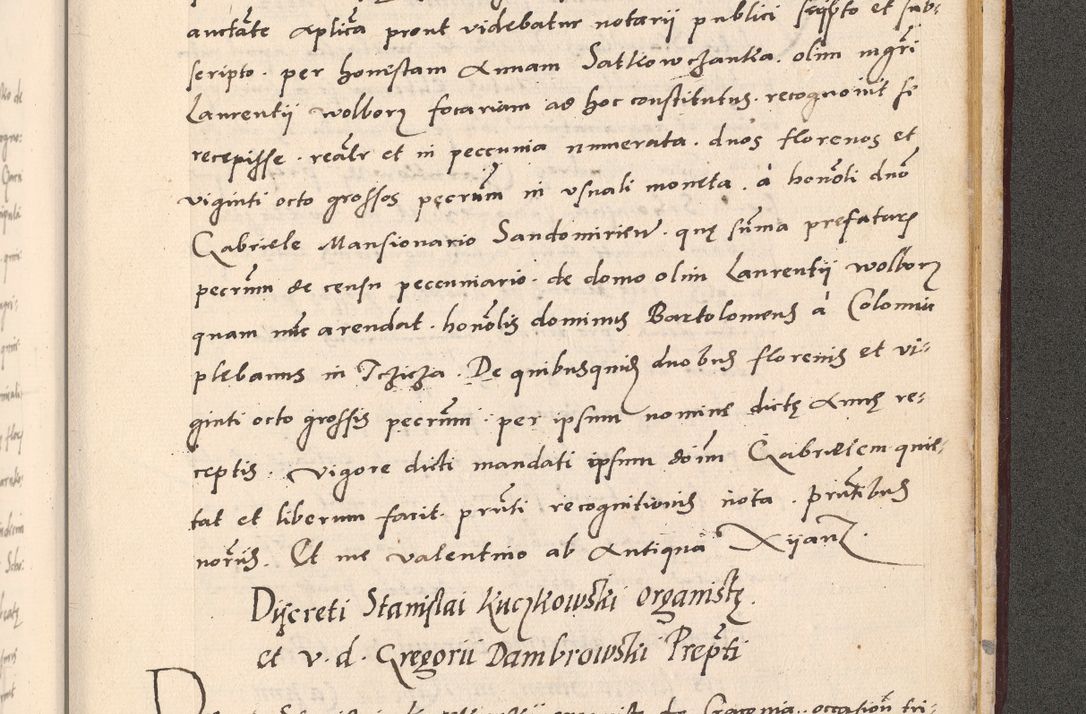 auctãte aplicã prout videbatur notarii publici scripto et sub-
scripto. per honestam Annam Satkowczanka. olim mgri
Laurentii wolborz focariam ad hoc constitutus. recognovit se
recepisse. realr et in peccunia numerata. duos florenos et
viginti octo grossos pecrum in usuali moneta. à honoli dno
Gabriele Mansionario Sandomirien. quę sūma prefatarũ
pecrum de censu peccuniario. de domo olim Laurentii wolborz
quam nūc arendat. honolis dominus Bartolomeus à Colomia
plebanus in Tczicza. De quibusquidẽ duobus florenis et vi-
ginti octo grossis pecrum. per ipsum nomine dictę Annę re-
ceptis. vigore dicti mandati ipsum doim Gabrielem quie-
tat et liberum facit. prñti recognitionis nota. prñtibus
noriis. Et me Valentino ab Antiqua
Discreti Stanislai Kuczkowski organistę.
et v. d. Gregorii Dambrowski Prepti
de Cracovia. occasion tri-